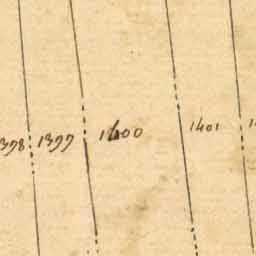 1398 1399 1400 1401